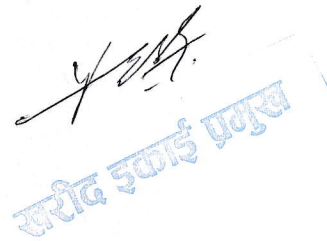 खरीद इकाई प्रमुख